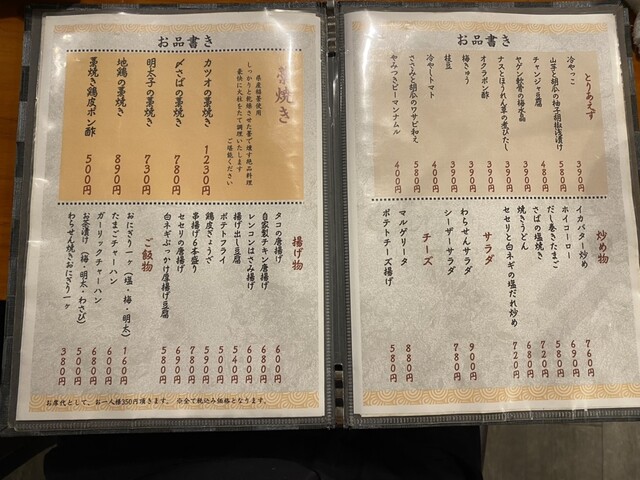 お品書き
とりあえず
冷やっこ 390円
山芋と胡瓜の柚子胡椒浅漬け 480円
チャンジャ豆腐 580円
ヤゲン軟骨の梅水晶 390円
ナスとほうれん草の煮びたし 390円
オクラポン酢 390円
梅きゅう 390円
枝豆 390円
冷やしトマト 400円
ささみと胡瓜のワサビ和え 580円
やみつきピーマンナムル 400円
炒め物
イカバター炒め 760円
ホイコーロー 690円
だし巻きたまご 580円
さばの塩焼き 720円
焼きうどん 680円
セセリと白ネギの塩だれ炒め 720円
サラダ
わらせんサラダ 900円
シーザーサラダ 780円
チーズ
マルゲリータ 880円
ポテトチーズ揚げ 580円
お品書き
藁焼き
県産稲藁使用
しっかりと乾燥させた藁で燻す絶品料理
豪快に火柱をたて調理いたします
ご堪能ください
カツオの藁焼き 1230円
〆さばの藁焼き 780円
明太子の藁焼き 730円
地鶏の藁焼き 890円
藁焼き鶏皮ポン酢 500円
揚げ物
タコの唐揚げ 600円
自家製チキン唐揚げ 680円
レンコンはさみ揚げ 600円
揚げ出し豆腐 540円
ポテトフライ 500円
鶏皮ぎょうざ 590円
串揚げ6本盛り 780円
セセリの唐揚げ 690円
白ネギぶっかけ厚揚げ豆腐 580円
ご飯物
おにぎり一ヶ（塩・梅・明太） 160円
たまごチャーハン 600円
ガーリックチャーハン 680円
お茶漬け（梅・明太・わさび） 500円
わらせん焼きおにぎり一ヶ 380円
お席代として、お一人様350円頂きます。 ※全て税込み価格となります。